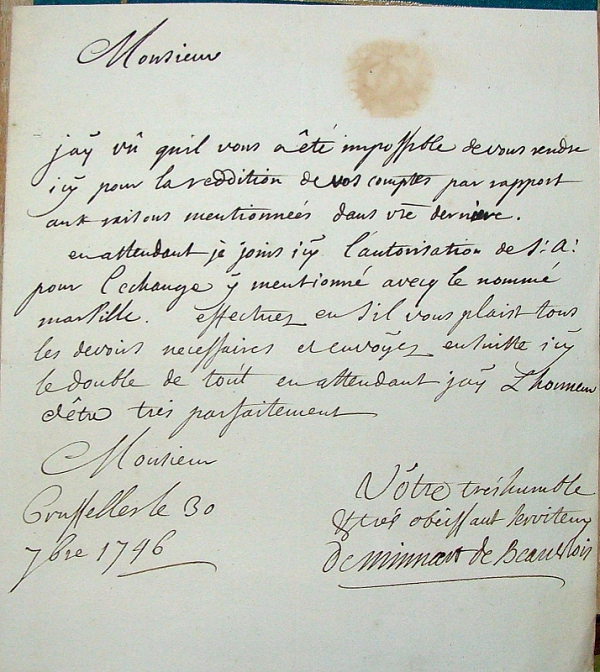 Monsieur
jaÿ vû quil vous a êté impossible de vous rendre
icÿ pour la reddition de vos comptes par rapport
aux raisons mentionneés dans vre derniere.
en attendant je joins icÿ l'autorisation de S: A:
pour l'echange ÿ mentionné avecq le nommé
effectuez en s'il vous plaist tous
les devoirs necessaires et envoyez ensuitte icÿ
le double de tout en attendant jaÿ L'honneur
d'être trés parfaitement
Monsieur
Brusselles le 30
7bre 1746
Vôtre trés humble
& trés obeissant serviteur
De